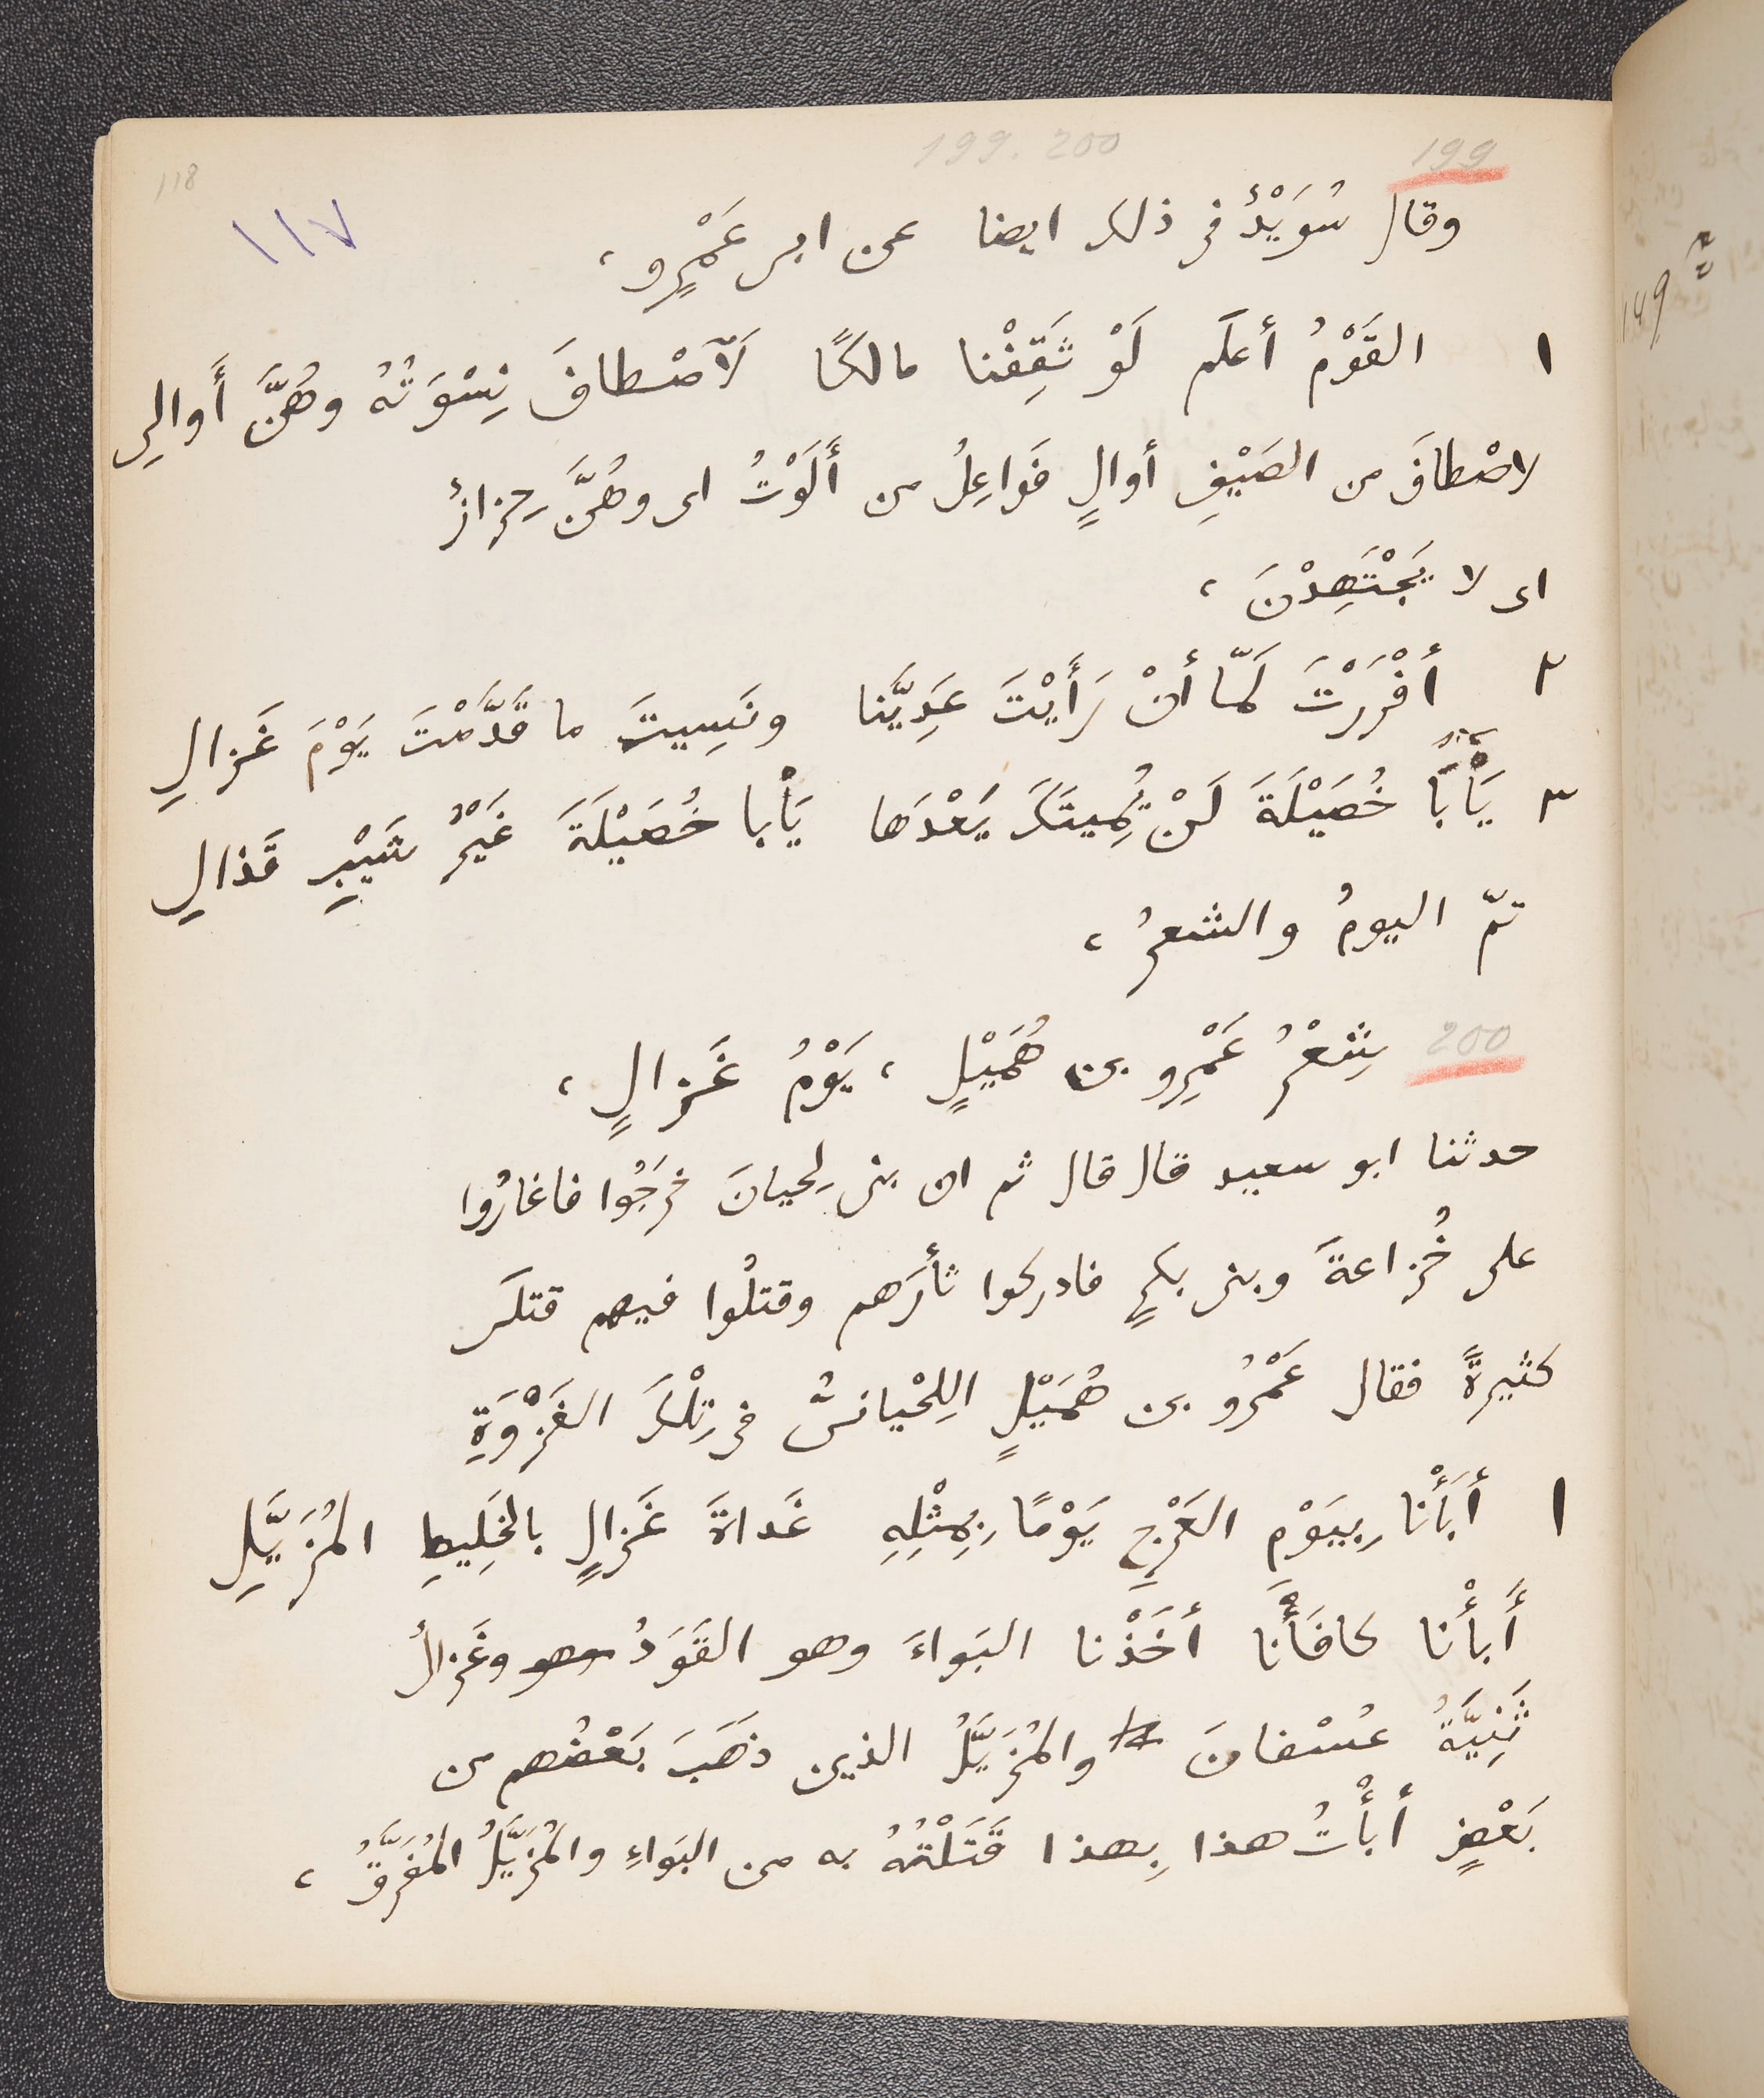 199. 200
199
118
١١٧
وقال سُوَيْدٌ فى ذلك ايضا عن ابى عَمْرٍو،
١ القَوْمُ أعلَم لَوْ ثَقِفْنا مالكًا لَآصْطافَ نِسْوَتُهُ وهُنَّ أَوالِى
لاصْطافَ من الصَيْفِ أوالٍ فَواعِلُ من أَلَوْتُ اى وهُنَّ حِزازٌ
اى لا يَجْتَهِدْنَ،
٢ أفْرَرْتَ لَمّا أنْ رَأَيْتَ عَدِيَّنا ونَسِيتَ ما قَدَّمْتَ يَوْمَ غَزالِ
٣ يَأْبَا خُصَيْلَةَ لَنْ تُمِيتَكَ بَعْدَها يَأْبا خُصَيْلَةَ غَيْرُ شَيْبِ قَذالِ
تمّ اليومُ والشعرُ،
200 شِعْرُ عَمْرِو بن هُمَيْلٍ، يَوْمُ غَزالٍ،
حدثنا ابو سعيد قال قال ثم ان بنى لِحيانَ خرَجُوا فاغارُوا
على خُزاعةَ وبنى بكرٍ فادركوا ثأرَهم وقتلُوا فيهم قتلَى
كثيرةً فقال عَمْرُو بن هُمَيْلٍ اللِحْيانىُّ فى تِلْكَ الغَزْوَةِ
١ أَبَأْنا بِيَوْمِ العَرْجِ يَوْمًا بِمِثْلِهِ غَداةَ غَزالٍ بالخَلِيطِ المُزَيَّلِ
أَبأْنا كافَأْنا أخَذْنا البَواءَ وهو القَوَدُ وهو وغَزالُ
ثَنِيَّةُ عُسْفانَ والمُزَيَّلُ الذين ذهَبَ بَعْضُهم من
بَعْضٍ أبأْتُ هذا بِهذا قَتَلْتُهُ به من البَواءِ والمُزَيَّلُ المُفَرَّقُ،
149